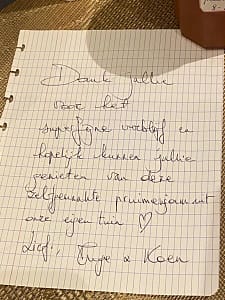 Dank jullie
voor het
superfijne verblijf en
hopelijk kunnen jullie
genieten van deze
zelfgemaakte pruimenjam uit
onze eigen tuin ♡
Liefs, & Koen